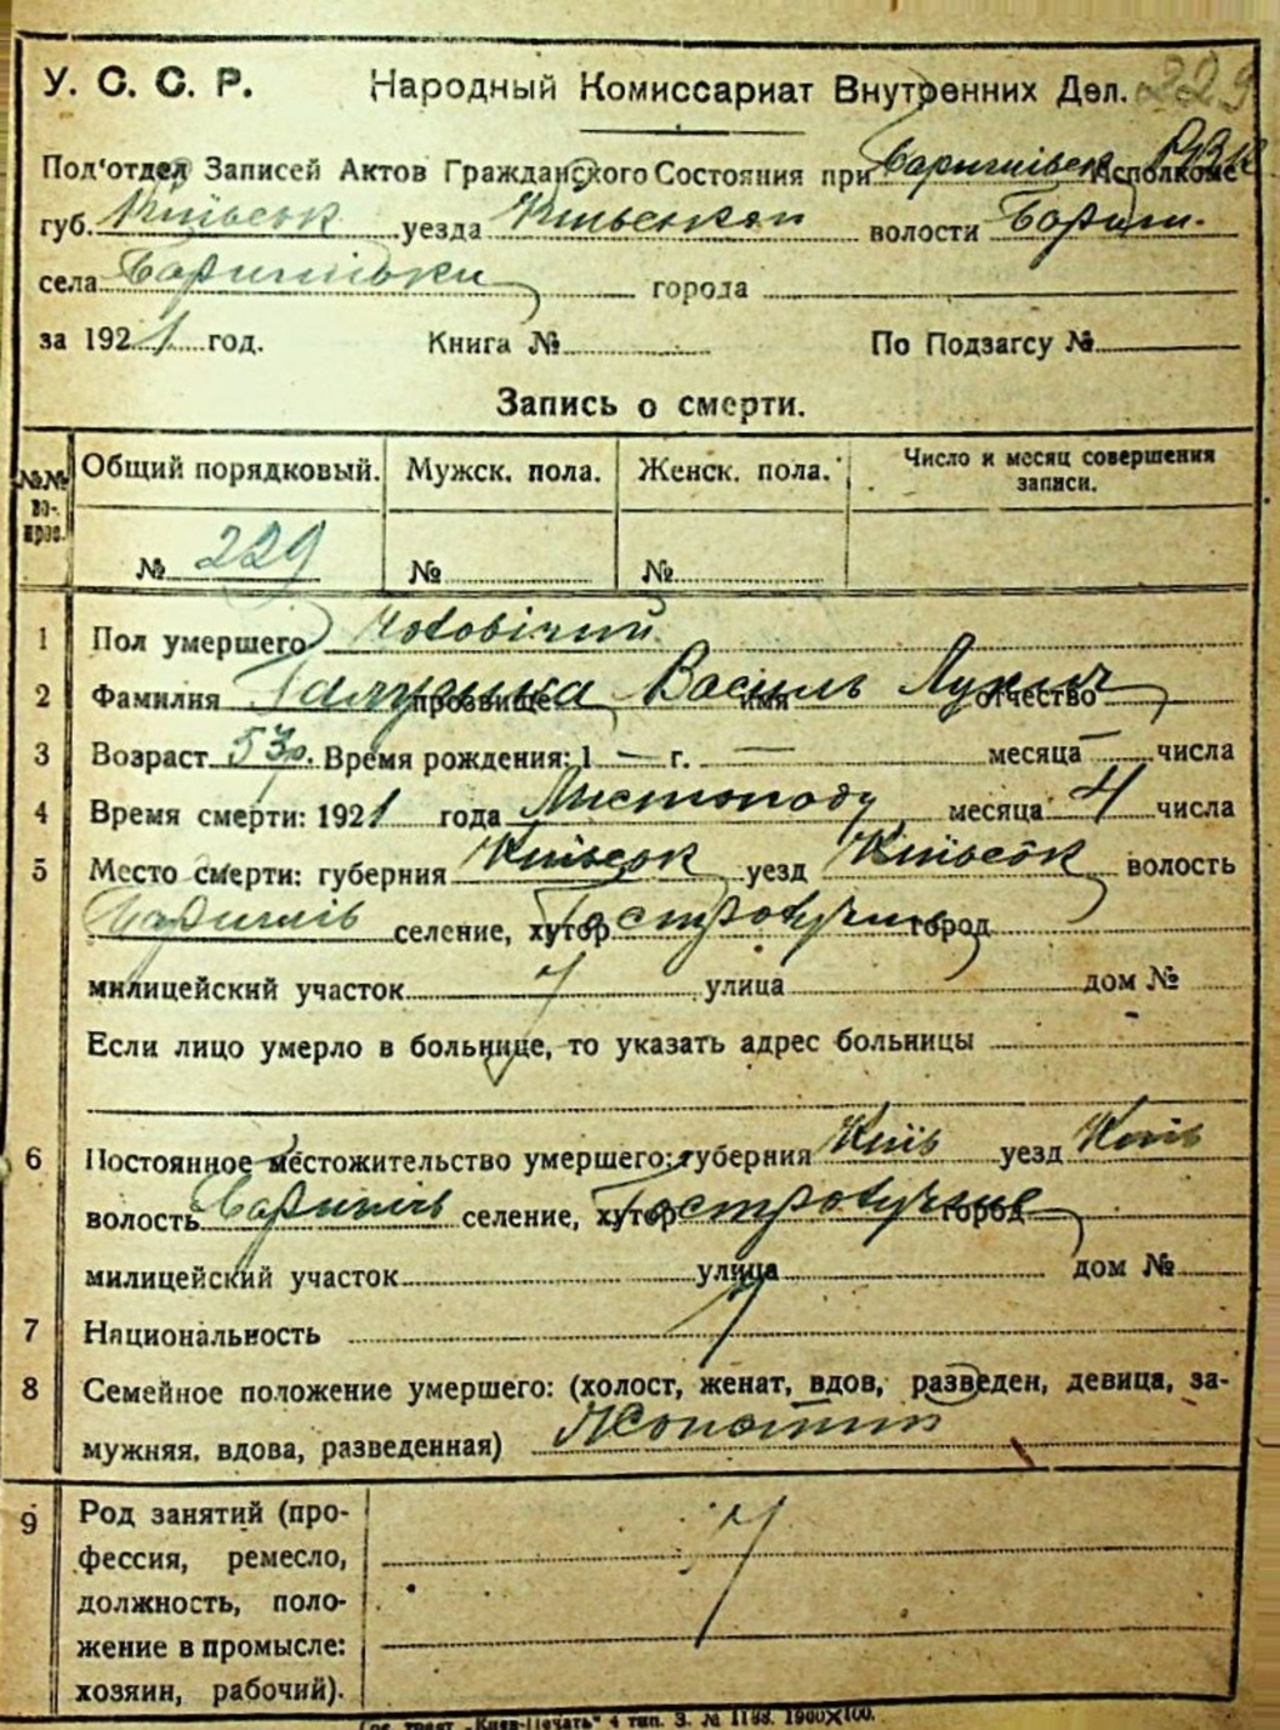 229
У. С. С. Р. Народный Комиссариат Внутренних Дел.
Под'отдел Записей Актов Гражданского Состояния при Исполкоме
губ. Київськ уезда Київської волости Бориш.
села Баришівки города
за 1921 год. Книга № По Подзагсу №
Запись о смерти.
№№ во-прос. Общий порядковый. Мужск. пола. Женск. пола. Число и месяц совершения записи.
№ 229 № №
1 Пол умершего Чоловічий
2 Фамилия прозвище имя отчество Василь Лукич
3 Возраст 53р. Время рождения: 1 — г. — месяца — числа
4 Время смерти: 1921 года Листопаду месяца 4 числа
5 Место смерти: губерния Київськ уезд Київськ волость
Баришів селение, хутор город
милицейский участок улица дом №
Если лицо умерло в больнице, то указать адрес больницы
6 Постоянное местожительство умершего: губерния Київ уезд Київ
волость Баришів селение, хутор город
милицейский участок улица дом №
7 Национальность
8 Семейное положение умершего: (холост, женат, вдов, разведен, девица, за-
мужняя, вдова, разведенная)
9 Род занятий (про-
фессия, ремесло,
должность, поло-
жение в промысле:
хозяин, рабочий).
трест „Киев-Печать“ 4 тип. З. № 1188. 1900×100.